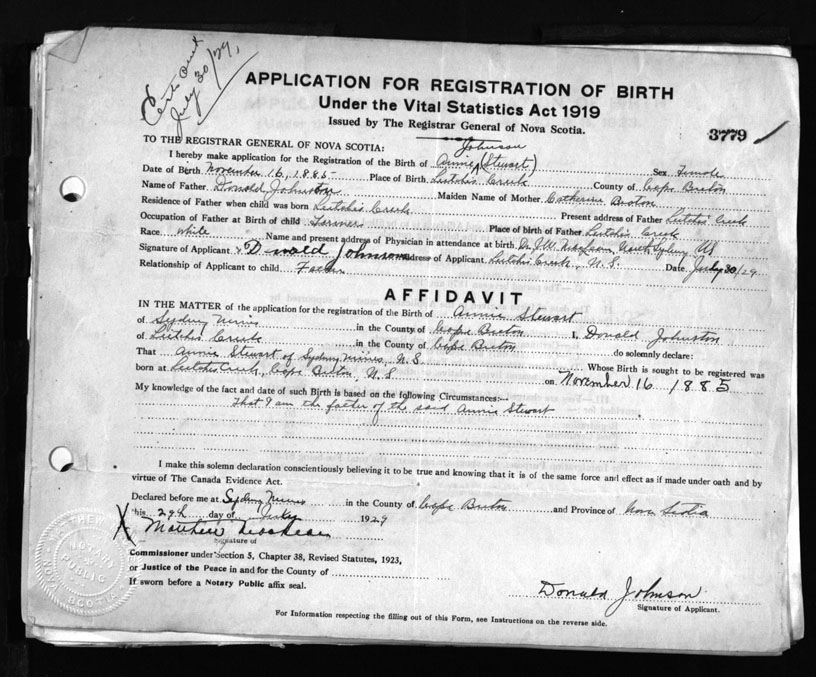 Cert sent
July 30/29,
APPLICATION FOR REGISTRATION OF BIRTH
Under the Vital Statistics Act 1919
Issued by The Registrar General of Nova Scotia.
3779
TO THE REGISTRAR GENERAL OF NOVA SCOTIA:
Johnson
I hereby make application for the Registration of the Birth of Annie (Stewart) Sex Female
Date of Birth November 16, 1885 Place of Birth Leitches Creek County of Cape Breton
Name of Father Donald Johnston Maiden Name of Mother Catherine
Residence of Father when child was born Leitches Creek Present address of Father Leitches Creek
Occupation of Father at Birth of child Farmer Place of birth of Father Leitches Creek
Race white Name and present address of Physician in attendance at birth Dr. J.W. North Sydney NS
Signature of Applicant Donald Johnson Address of Applicant Leitches Creek, N.S. Date July 30/29
Relationship of Applicant to child Father
AFFIDAVIT
IN THE MATTER of the application for the registration of the Birth of Annie Stewart
of Sydney Mines in the County of Cape Breton I, Donald Johnston
of Leitches Creek in the County of Cape Breton do solemnly declare:
That Annie Stewart of Sydney Mines, N.S. Whose Birth is sought to be registered was
born at Leitches Creek, Cape Breton, N.S on November 16 1885
My knowledge of the fact and date of such Birth is based on the following Circumstances:—
That I am the father of the said Annie Stewart
I make this solemn declaration conscientiously believing it to be true and knowing that it is of the same force and effect as if made under oath and by
virtue of The Canada Evidence Act.
Declared before me at Sydney Mines in the County of Cape Breton and Province of Nova Scotia
this 29th day of July 1929
X Matthew
Signature of
Commissioner under Section 5, Chapter 38, Revised Statutes, 1923,
or Justice of the Peace in and for the County of
If sworn before a Notary Public affix seal.
NOTARY
PUBLIC
SCOTIA
Donald Johnson
Signature of Applicant.
For Information respecting the filling out of this Form, see Instructions on the reverse side.